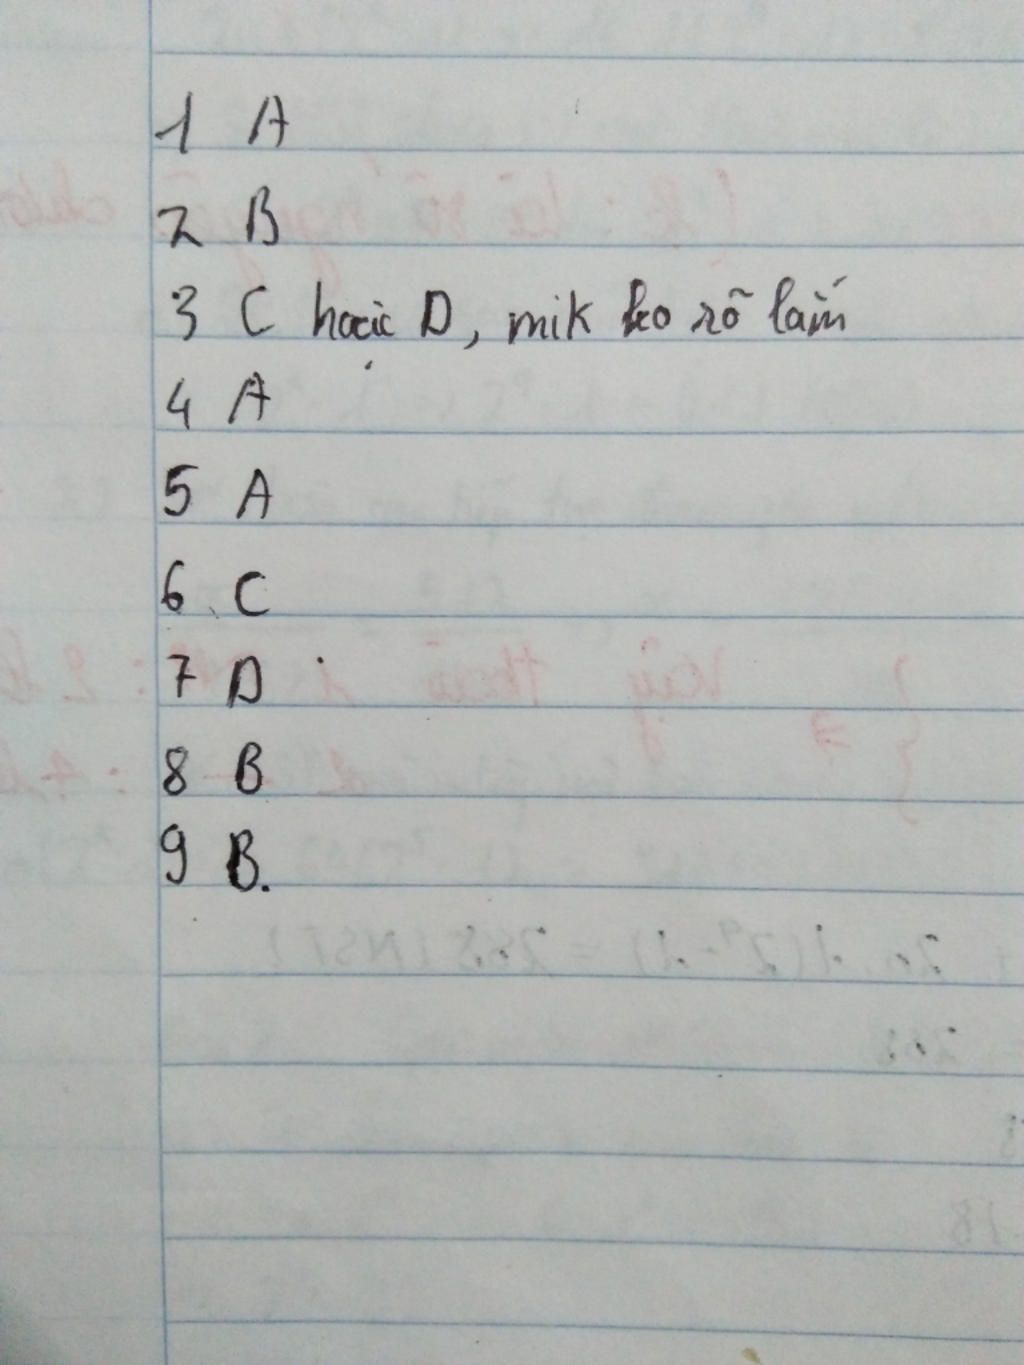 1 A
2 B
3 C hoặc D, mik ko rõ lắm
4 A
5 A
6 C
7 D
8 B
9 B.